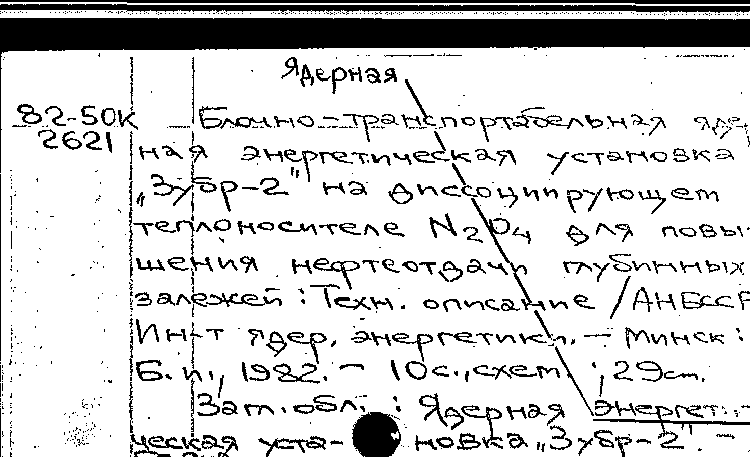 Ядерная
82-50К Блочно-транспортабельная ядер
2621 ная энергетическая установка
„Зубр-2" на диссоциирующем
теплоносителе N2O4 для повы-
шения нефтеотдачи глубинных
залежей : Техн. описание / АН БССР
Ин-т ядер. энергетики. – Минск :
Б. и., 1982. – 10 с., схем. ; 29 см.
Загл. обл. : Ядерная энергети-
ческая уста- новка „Зубр-2". –